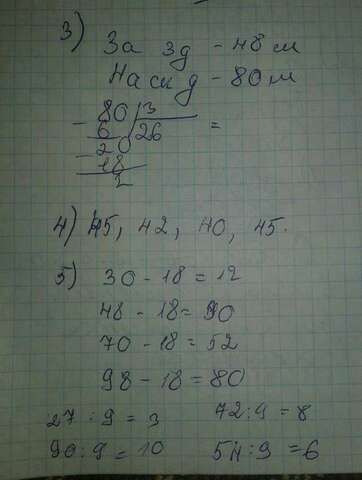 3) За 3д - 48 м
На ск д - 80 м
- 80 | 3
6 | 26 =
- 20
18
2
4) 45, 42, 40, 45.
5) 30 - 18 = 12
48 - 18 = 30
70 - 18 = 52
98 - 18 = 80
27 : 9 = 3 72 : 9 = 8
90 : 9 = 10 54 : 9 = 6